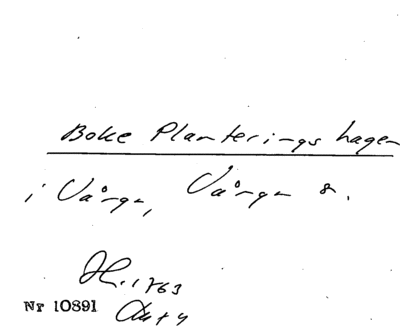 Boke Planterings hagen
i Vånga, Vånga s.
H. 1763
Nr 10891